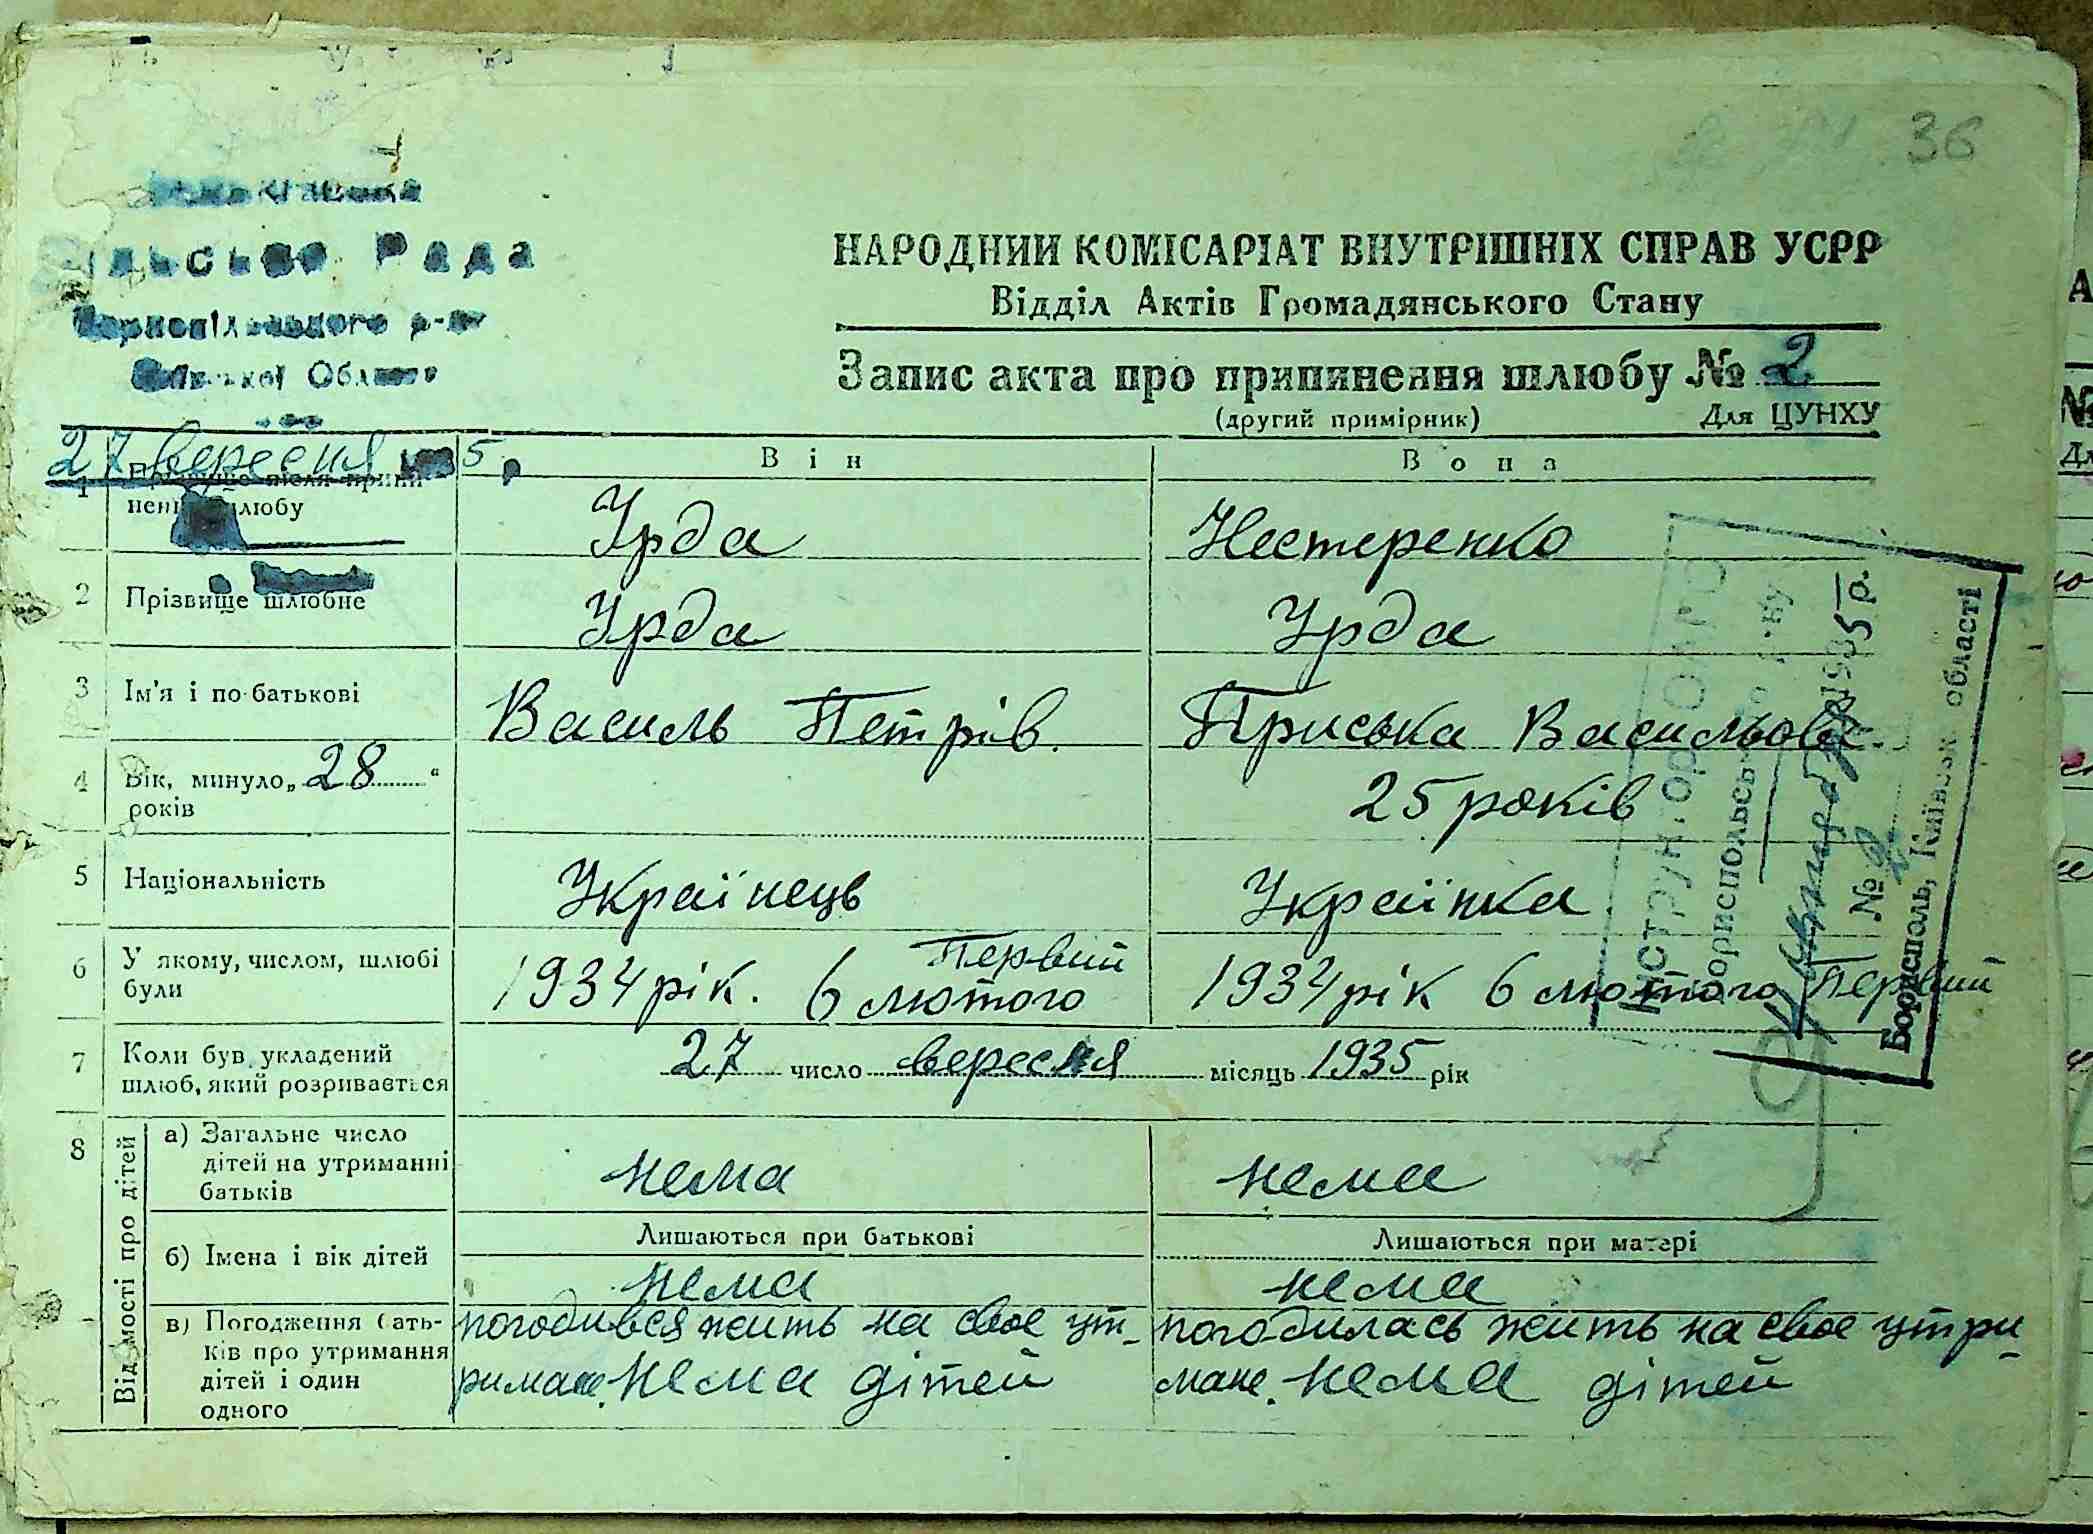 36
Рада
р-ну
Області
27 вересня 5
НАРОДНИЙ КОМІСАРІАТ ВНУТРІШНІХ СПРАВ УСРР
Відділ Актів Громадянського Стану
Запис акта про припинення шлюбу № 2
(другий примірник) Для ЦУНХУ
Він Вона
1 Прізвище після припинення шлюбу Урда Нестеренко
2 Прізвище шлюбне Урда Урда
3 Ім'я і по-батькові Василь Петрів. Приська Васильов
4 Вік, минуло „28“ 25 років
років
5 Національність Українець Українка
6 У якому, числом, шлюбі були 1934 рік. 6 лютого Первий 1934 рік 6 лютого Первий
7 Коли був укладений шлюб, який розривається 27 число вересня місяць 1935 рік
8 Відомості про дітей
а) Загальне число дітей на утриманні батьків нема нема
Лишаються при батькові Лишаються при матері
б) Імена і вік дітей нема нема
в) Погодження батьків про утримання дітей і один одного
погодився жить на своє ут-
римане. нема дітей
погодилась жить на своє утри-
мане. нема дітей
1935 р.
№ 2
Бориспіль, Київськ області